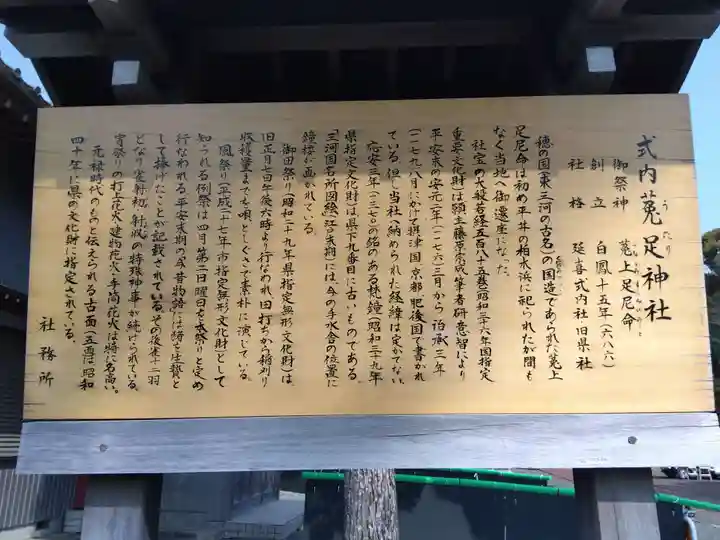 式内菟足神社
うたり
御祭神 菟上足尼命
創立 白鳳十五年(六八六)
社格 延喜式内社旧県社
穂の国(東三河の古名)の国造であられた菟上
足尼命は初め平井の柏木浜に祀られたが間も
なく当地へ御遷座になった。
社宝の大般若経五百八十五巻(昭和三十六年国指定
重要文化財)は願主藤原宗成筆者研意智により
平安末の安元二年(一一七六)三月から治承三年
(一一七九)八月にかけて摂津国京都肥後国で書かれ
ている。但し当社へ納められた経緯は定かでない。
応安三年(一三七〇)の銘のある梵鐘(昭和三十九年
県指定文化財)は県下九番目に古いものである。
「三河国名所図絵」(江戸末期)には今の手水舎の位置に
鐘楼が画かれている。
御田祭り(昭和二十九年県指定無形文化財)は、
旧正月七日午後六時より行なわれ田打ちから稲刈り
収穫量までも唄としぐさで素朴に演じている。
風祭り(平成二十七年市指定無形文化財)として
知られる例祭は四月第二日曜日を本祭りと定め
行なわれる。平安末期の今昔物語には猪を生贄と
して捧げたことが記載されている。その後雀十二羽
となり雀射初、射放の特殊神事が続けられている。
宵祭りの打上花火・建物花火・手筒花火は特に名高い。
元禄時代のものと伝えられる古面(五面)は昭和
四十年に県の文化財に指定されている。
社務所